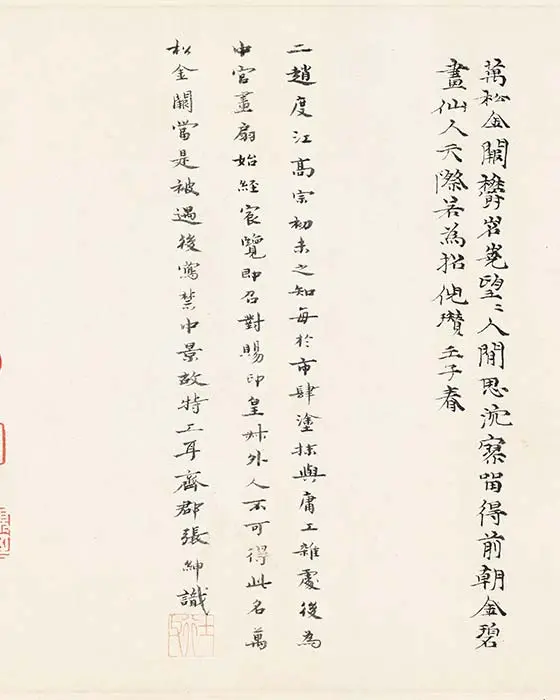 萬松金闕鬱岧嶢望〻人間思泬寥留得前朝金碧
畫仙人天際若為招倪瓚壬子春
二趙度江高宗初未之知每於市肆塗抹與庸工雜處後為
中官畫扇始經宸覽即召對賜印皇叔外人不可得此名萬
松金闕當是被遇後寫禁中景故特工耳齊郡張紳識